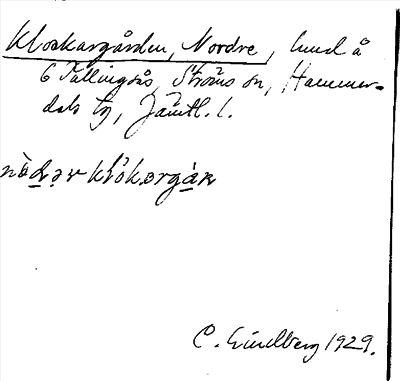 Klockargården, Nordre, hmd å
6 Tullingsås, Ströms sn, Hammer-
dals tg, Jämtl. l.
nὸdər klὸkərgàɳ
C. Lindberg 1929.